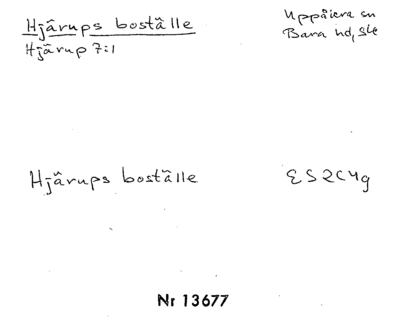 Hjärups boställe
Hjärup 7:1
Uppåkra sn
Bara hd, Ske
Hjärups boställe
ES2C4g
Nr 13677